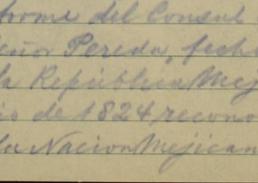 forme del Consul
eñor Pereda, fech
la República Mej
io de 1824, recono
la Nacion Mejican